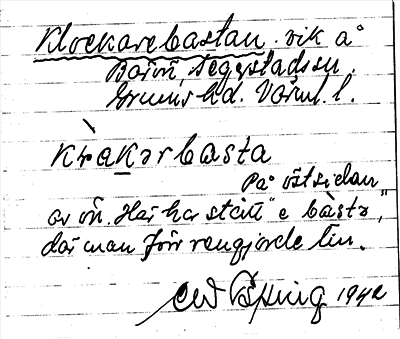 Klockarebastan. vik å
Bärön, Segerstads sn.
Grums hd. Värml. l.
Kra̱kerbasta
På östsidan
av ön. Här har stått "e båsta",
där man förr rengjorde lin.
1942